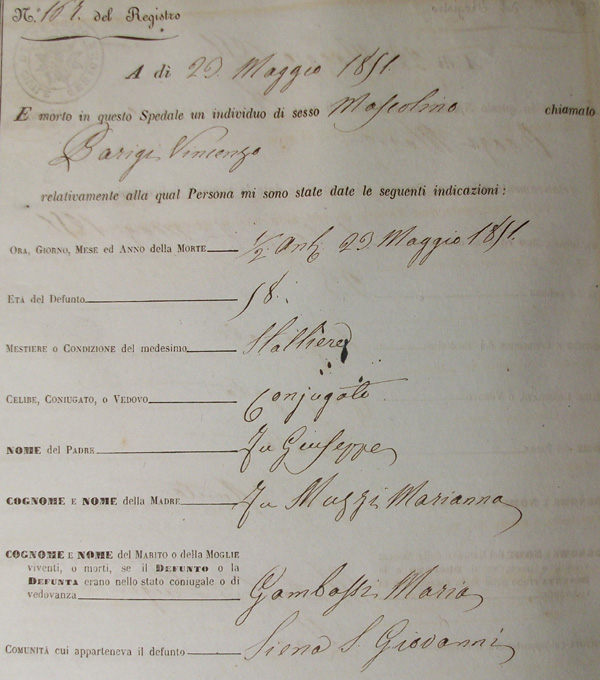 N.º 167. del Registro
A di 23 Maggio 1851.
E morto in questo Spedale un individuo di sesso Mascolino chiamato
Barigi Vincenzo
relativamente alla qual Persona mi sono state date le seguenti indicazioni :
ORA, GIORNO, MESE ED ANNO della MORTE 1/2 Ant. 23 Maggio 1851.
ETÀ del DEFUNTO 58.
MESTIERE O CONDIZIONE del medesimo Stalliere
CELIBE, CONIUGATO, O VEDOVO Conjugato
NOME del PADRE Fu Giuseppe
COGNOME E NOME della MADRE Fu Muzzi Marianna
COGNOME E NOME del MARITO o della MOGLIE
viventi, o morti, se il DEFUNTO o la
DEFUNTA erano nello stato coniugale o di
vedovanza Gambassi Maria
COMUNITÀ cui apparteneva il defunto Siena S. Giovanni